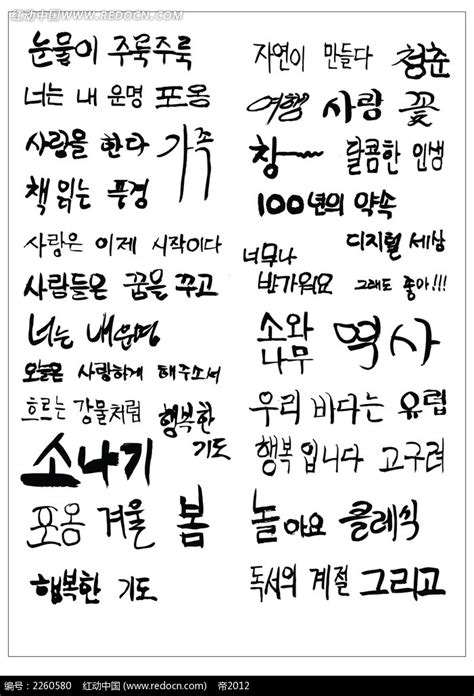 红动中国 WWW.REDOCN.COM
눈물이 주룩주룩
너는 내 운명 포옹
사람을 한다 가족
책 읽는 풍경
사랑은 이제 시작이다
사람들은 꿈을 꾸고
너는 내운명
오늘은 사랑하게 해주소서
흐르는 강물처럼 행복한 기도
소나기
포옹 겨울 봄
행복한 기도
자연이 만들다 청춘
여행 사랑 꽃
창~ 달콤한 인생
100년의 약속
너무나 반가워요
디지털 세상
그래도 좋아!!!
소와 나무 역사
우리 바다는 유럽
행복입니다 고구려
놀아요 클래식
독서의 계절 그리고
编号：2260580 红动中国 (www.redocn.com) 帝2012